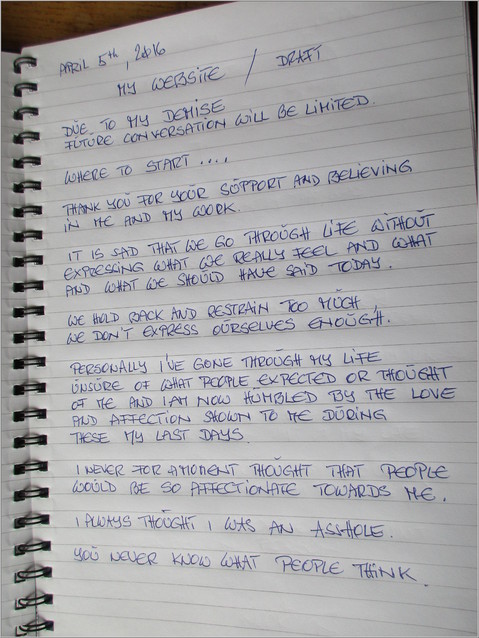 APRIL 5th, 2016
MY WEBSITE / DRAFT
DUE TO MY DEMISE
FUTURE CONVERSATION WILL BE LIMITED.
WHERE TO START ....
THANK YOU FOR YOUR SUPPORT AND BELIEVING
IN ME AND MY WORK.
IT IS SAD THAT WE GO THROUGH LIFE WITHOUT
EXPRESSING WHAT WE REALLY FEEL AND WHAT
AND WHAT WE SHOULD HAVE SAID TODAY.
WE HOLD BACK AND RESTRAIN TOO MUCH,
WE DON'T EXPRESS OURSELVES ENOUGH.
PERSONALLY I'VE GONE THROUGH MY LIFE
UNSURE OF WHAT PEOPLE EXPECTED OR THOUGHT
OF ME AND I AM NOW HUMBLED BY THE LOVE
AND AFFECTION SHOWN TO ME DURING
THESE MY LAST DAYS.
I NEVER FOR A MOMENT THOUGHT THAT PEOPLE
WOULD BE SO AFFECTIONATE TOWARDS ME.
I ALWAYS THOUGHT I WAS AN ASSHOLE.
YOU NEVER KNOW WHAT PEOPLE THINK.